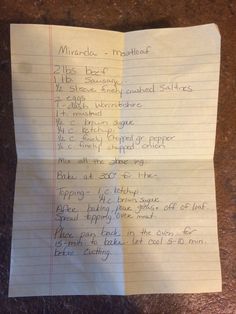 Miranda - meatloaf
2 lbs beef
1 lb. Sausage
½ sleeve finely crushed saltines
2 eggs
1 - dash Worcestshire
1 t. mustard
½ c brown sugar
¼ c ketchup
¼ c finely chopped gr pepper
¼ c finely chopped onion
Mix all the above ing.
Bake at 350° for 1 hr.
Topping - 1 c ketchup
¼ c brown sugar
After baking, pour grease off of loaf.
Spread topping over meat.
Place pan back in the oven for
15-min to bake. Let cool 5-10 min.
before cutting.